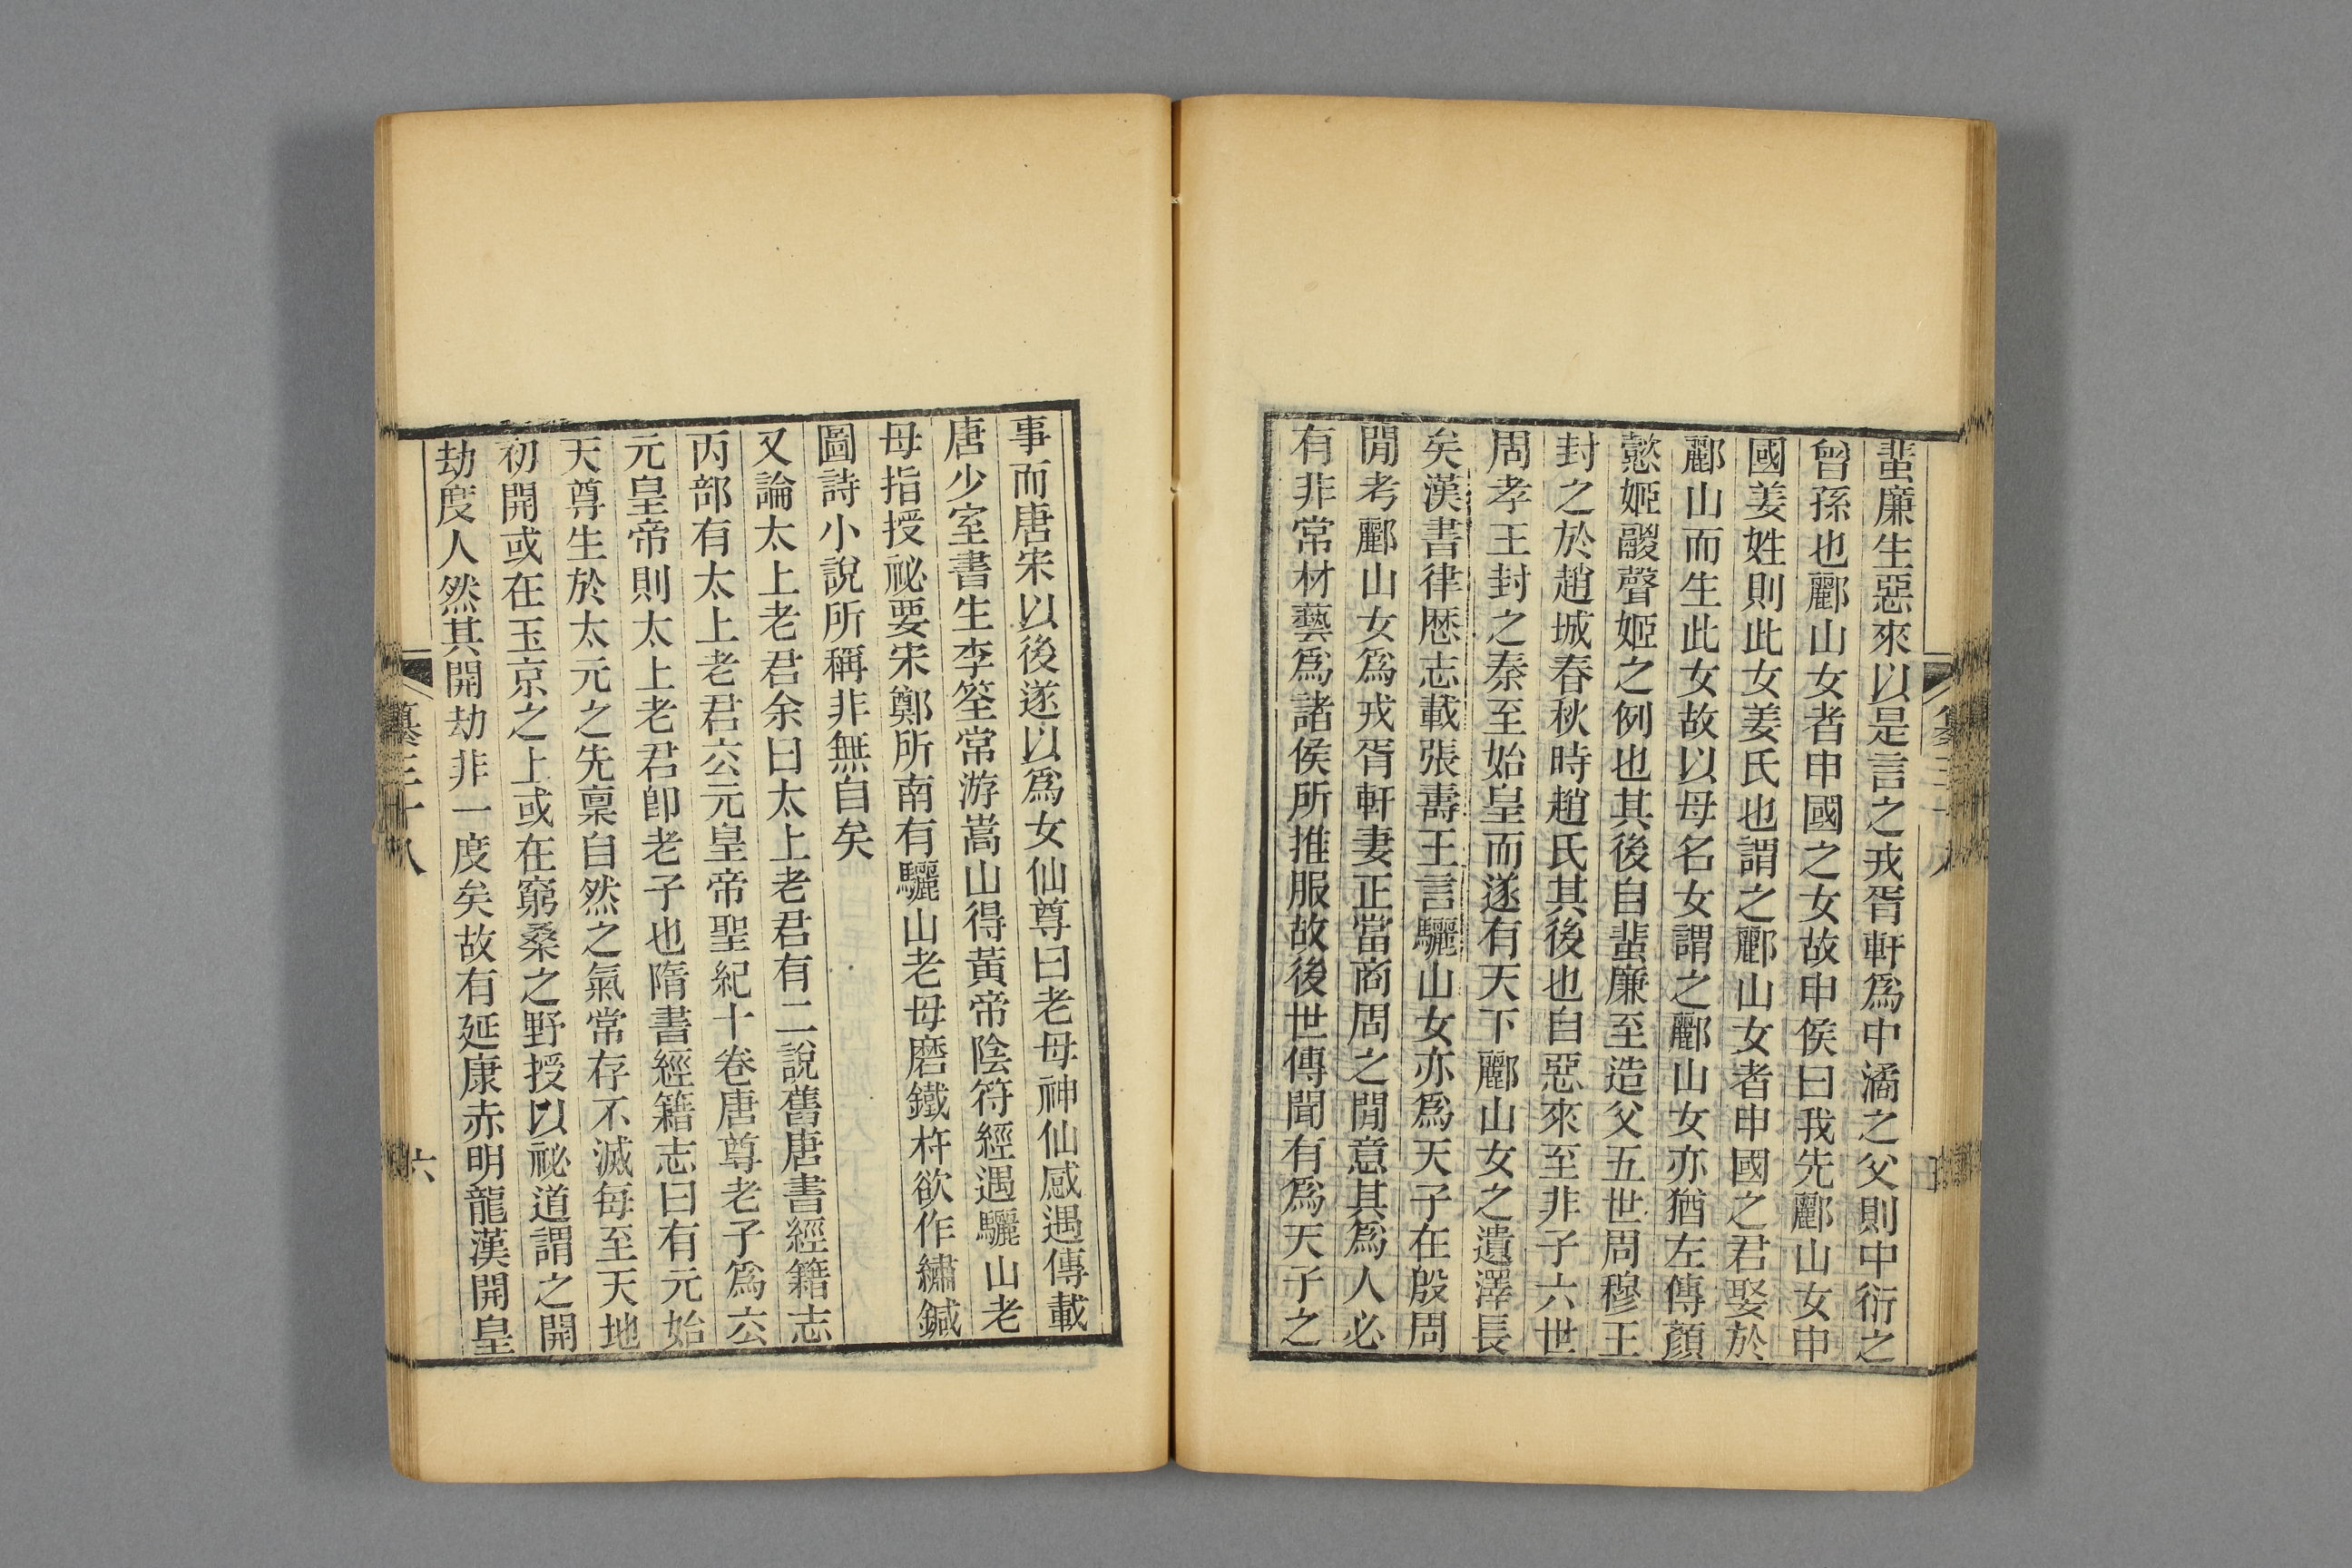 蜚廉生惡來以是言之戎胥軒爲中潏之父則中衍之
曾孫也酈山女者申國之女故申侯曰我先酈山女申
國姜姓則此女姜氏也謂之酈山女者申國之君娶於
酈山而生此女故以母名女謂之酈山女亦猶左傳顏
懿姬鬷聲姬之例也其後自蜚廉至造父五世周穆王
封之於趙城春秋時趙氏其後也自惡來至非子六世
周孝王封之秦至始皇而遂有天下酈山女之遺澤長
矣漢書律厯志載張壽王言驪山女亦爲天子在殷周
閒考酈山女爲戎胥軒妻正當商周之閒意其爲人必
有非常材藝爲諸侯所推服故後世傳聞有爲天子之
事而唐宋以後遂以爲女仙尊曰老母神仙感遇傳載
唐少室書生李筌常游嵩山得黃帝陰符經遇驪山老
母指授祕要宋鄭所南有驪山老母磨鐵杵欲作繡鍼
圖詩小說所稱非無自矣
又論太上老君余曰太上老君有二說舊唐書經籍志
丙部有太上老君玄元皇帝聖紀十卷唐尊老子爲玄
元皇帝則太上老君卽老子也隋書經籍志曰有元始
天尊生於太元之先稟自然之氣常存不滅每至天地
初開或在玉京之上或在窮桑之野授以祕道謂之開
劫度人然其開劫非一度矣故有延康赤明龍漢開皇
纂三十八
六